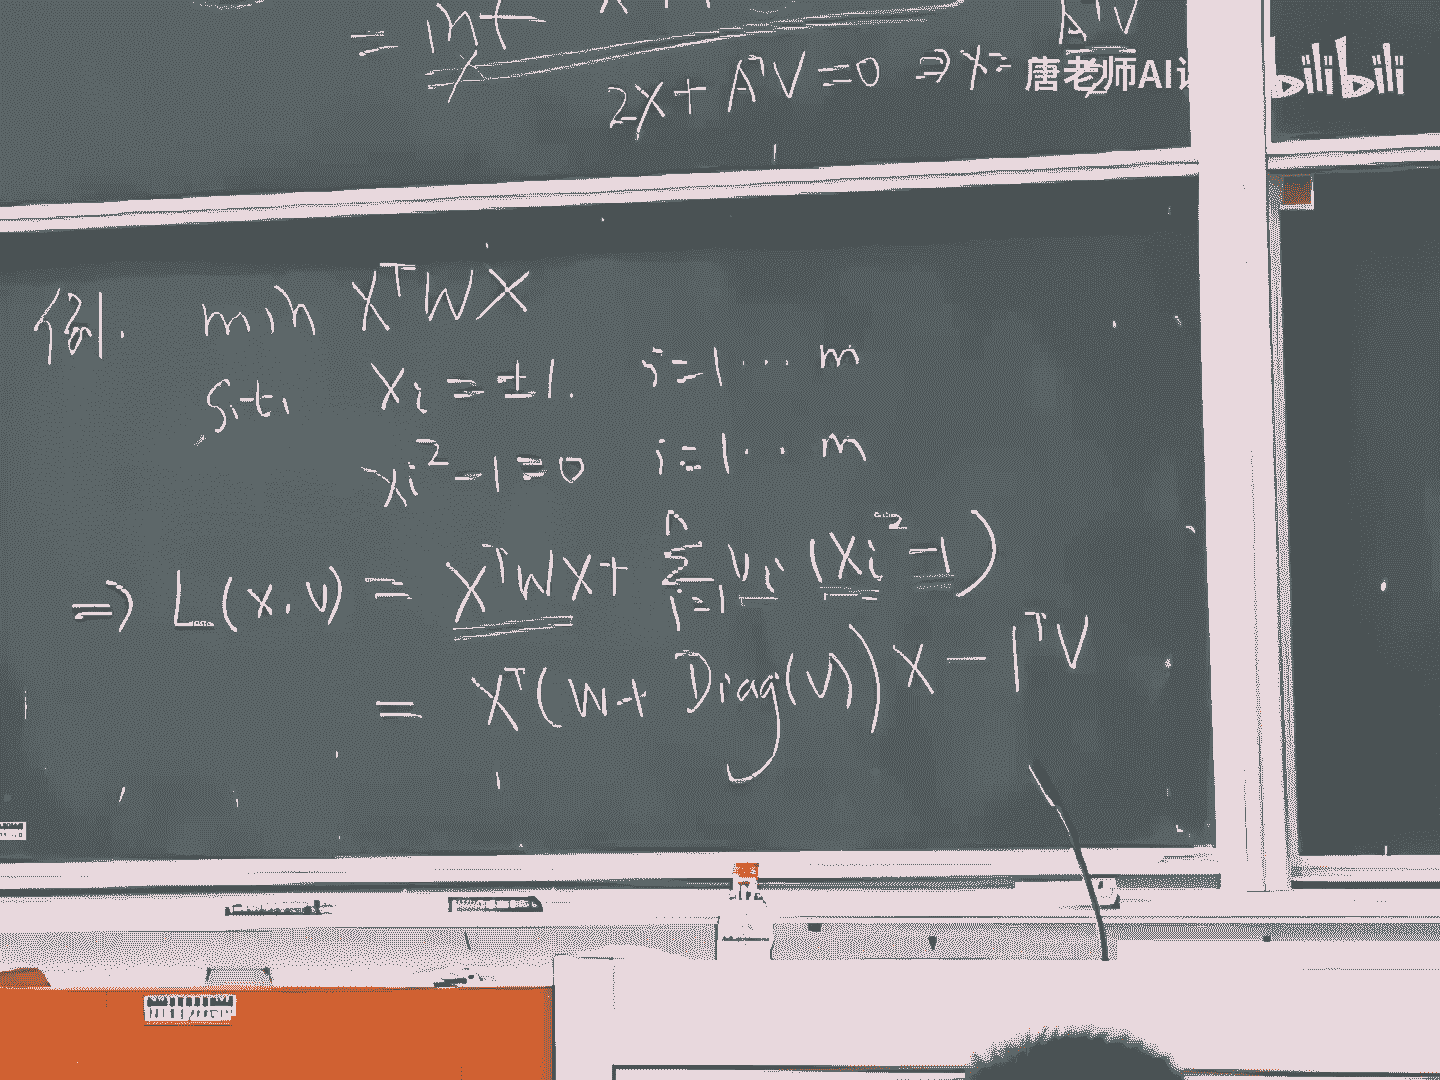 = inf
2x + AᵀV = 0 ⇒ x =
AᵀV
唐老师AI
bilibili
例. min XᵀWX
s.t. Xi = ±1. i=1 ··· m
xi² - 1 = 0 i=1 ·· m
⇒ L(x, v) = XᵀWX + Σ_{i=1}^{n} vi (Xi² - 1)
= Xᵀ(W + Diag(V))X - 1ᵀV